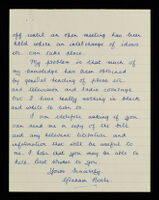 off until an open meeting has been
held where an interchange of ideas
etc. can take place.
My problem is that much of
my knowledge has been obtained
by general reading of press etc
and television and radio coverage
but I have really nothing in black
and white to turn to.
I am therefore asking if you
can send me a copy of the Bill
and any relevant literature and
information that will be useful to
me. I hope that you may be able to
help. Best wishes to you.
Yours Sincerely